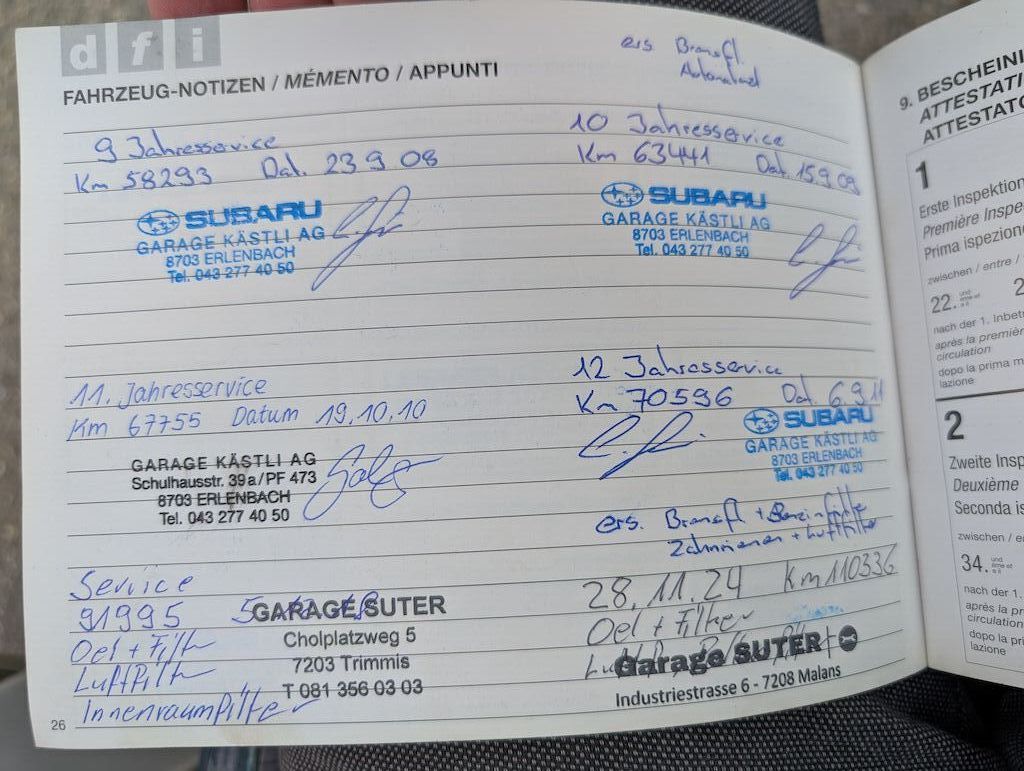 dfi
FAHRZEUG-NOTIZEN / MÉMENTO / APPUNTI
ers. Bremsfl.
9 Jahresservice
Km 58293 Dat. 23 9 08
SUBARU
GARAGE KÄSTLI AG
8703 ERLENBACH
Tel. 043 277 40 50
10 Jahresservice
Km 63441 Dat. 15.9 09
SUBARU
GARAGE KÄSTLI AG
8703 ERLENBACH
Tel. 043 277 40 50
11. Jahresservice
Km 67755 Datum 19.10.10
GARAGE KÄSTLI AG
Schulhausstr. 39a/PF 473
8703 ERLENBACH
Tel. 043 277 40 50
12 Jahresservice
Km 70596 Dat. 6.9.11
SUBARU
GARAGE KÄSTLI AG
8703 ERLENBACH
Tel. 043 277 40 50
ers. Bremsfl + Benzinfilter
Zahnriemen + Luftfilter
Service
91995
Oel + Filter
Luftfilter
Innenraumfilter
GARAGE SUTER
Cholplatzweg 5
7203 Trimmis
T 081 356 03 03
28.11.24 Km 110336
Oel + Filter
Garage SUTER
Industriestrasse 6 - 7208 Malans
26
9. BESCHEINI
ATTESTATI
ATTESTATO
1
Erste Inspektion
Première Inspe
Prima ispezione
zwischen / entre /
22.
nach der 1. Inbet
après la première
circulation
dopo la prima m
lazione
2
Zweite Insp
Deuxième
Seconda is
zwischen / en
34.
nach der 1.
après la pr
circulation
dopo la pri
lazione